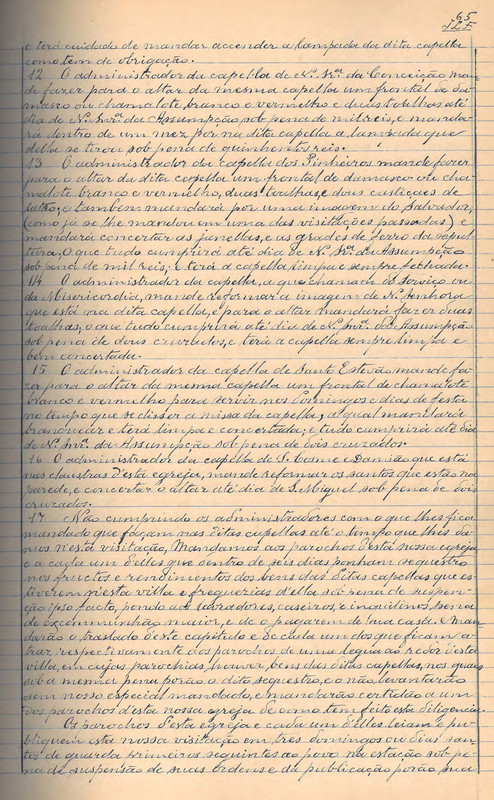 65
e terá cuidado de mandar accender a lampada da dita capella
como tem de obrigação.
12 O administrador da capella de N. Srª da Conceição man-
de fazer para o altar da mesma capella um frontal de da-
masco ou chamalote branco e vermelho e duas toalhas até
dia de N. Snrª da Assumpção sob pena de mil reis, e manda-
rá dentro de um mez por na dita capella a lampada que
della se tirou sob pena de quinhentos reis.
13 O administrador da capella dos Pinheiros mande fazer
para o altar da dita capella um frontal de damasco ou cha-
malote branco e vermelho, duas toalhas, e dous castiçaes de
latão; e tambem mandará por uma imagem do Salvador,
(como já se lhe mandou em uma das visitações passadas) e
mandará concertar as janellas, e as grades de ferro da sepul-
tura, o que tudo cumprirá até dia de N. Srª da Assumpção
sob pena de mil reis, e terá a capella limpa e sempre fechada.
14 O administrador da capella, a que chamam do Serviço ou
da Misericordia, mande reformar a imagem de N. Senhora
que está na dita capella, e para o altar mandará fazer duas
toalhas, o que tudo cumprirá até dia de N. Snrª da Assumpção
sob pena de dous cruzados, e terá a capella sempre limpa e
bem concertada.
15 O administrador da capella de Santo Estevão mande fa-
zer para o altar da mesma capella um frontal de chamalote
branco e vermelho para servir nos Domingos e dias de festa
no tempo que se disser a missa da capella, a qual mandará
branquear e terá limpa e concertada; e tudo cumprirá até dia
de N. Snrª da Assumpção sob pena de dois cruzados.
16 O administrador da capella de S. Cosme e Damião que está
nas claustras d'esta egreja, mande reformar os santos que estão na
parede, e concertar o altar até dia de S. Miguel sob pena de dois
cruzados.
17 Não cumprindo os administradores com o que lhes fica
mandado que façam nas ditas capellas até o tempo que lhes da-
mos n'esta visitação, Mandamos aos parochos d'esta nossa egreja
e a cada um d'elles que dentro de seis dias ponham sequestro
nos fructos e rendimentos dos bens das ditas capellas que es-
tiverem n'esta villa e freguezias d'ella sob pena de suspen-
ção ipso facto, pondo aos lavradores, caseiros, e inquilinos pena
de excommunhão maior, e de o pagarem de sua casa. E man-
darão o traslado d'este capitulo e de cada um dos que ficam a-
traz respectivamente dos parochos de uma legua ao redor d'esta
villa, em cujas parochias houver bens das ditas capellas, nos quaes
sob a mesma pena porão o dito sequestro, e o não levantarão
sem nosso especial mandado, e mandarão certidão a um
dos parochos d'esta nossa egreja de como tem feito esta diligencia.
Os parochos d'esta egreja e cada um d'elles leiam e pu-
bliquem esta nossa visitação em tres domingos ou dias san-
tos de guarda primeiros seguintes ao povo na estação sob pe-
na de suspensão de suas ordens e da publicação porão sua